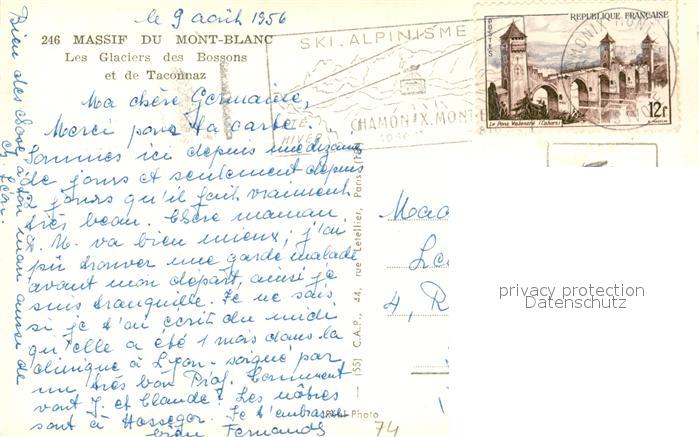 le 9 août 1956
246 MASSIF DU MONT-BLANC
Les Glaciers des Bossons
et de Taconnaz
Ma chère Germaine,
Merci pour ta carte.
Sommes ici depuis une dizaine
de jours et seulement depuis
jours qu'il fait vraiment
très beau. Chère maman
va bien mieux ; j'ai
pu trouver une garde malade
avant mon départ, ainsi je
suis tranquille. Je ne sais
si je t'ai écrit du midi
qu'elle a été 1 mois dans la
clinique à Lyon - soignée par
un très bon Prof. Comment
vont J. et Claude ? Les nôtres
sont à Hossegor. Je t'embrasse
bien Fernande
Bien des choses à ton mari aussi de
SKI. ALPINISME
ÉTÉ
HIVER
CHAMONIX. MONT-B
CHAMONIX MONT
REPUBLIQUE FRANÇAISE
POSTES
Le Pont Valentré (Cahors)
12f
(55) C.A.P., 44, rue Letellier, Paris
Real-Photo
Mad
4, R
privacy protection
Datenschutz
74